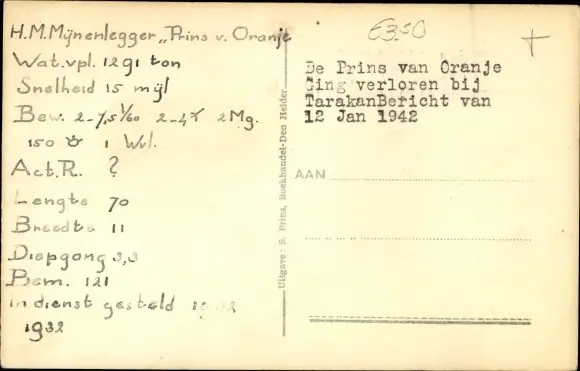 H.M. Mijnenlegger „Prins v. Oranje
Wat. vpl. 1291 ton
Snelheid 15 mijl
Bew. 2-7,5 1/60 2-4 2 Mg.
150 1 Vul.
Act. R. ?
Lengte 70
Breedte 11
Diepgang 3,3
Bem. 121
in dienst gesteld 1932
1932
Uitgave: S. Prins, Boekhandel-Den Helder
6350
De Prins van Oranje
Ging verloren bij
TarakanBericht van
12 Jan 1942
AAN